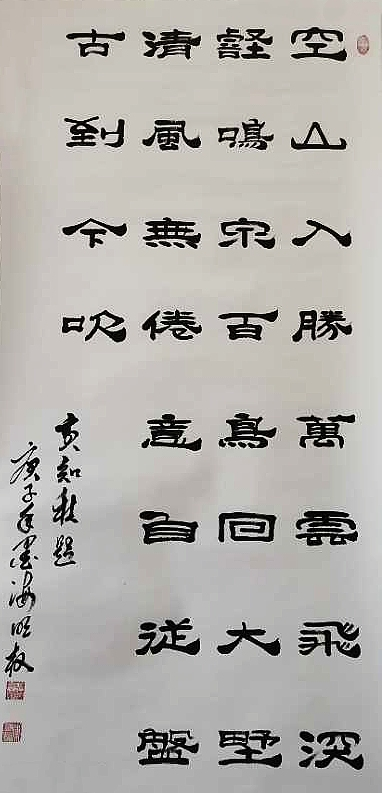 空山入勝萬雲飛深
壑鳴宗百鳥回大野
清風無倦意自從盤
古到今吹
黄知秋題
庚子年墨海明